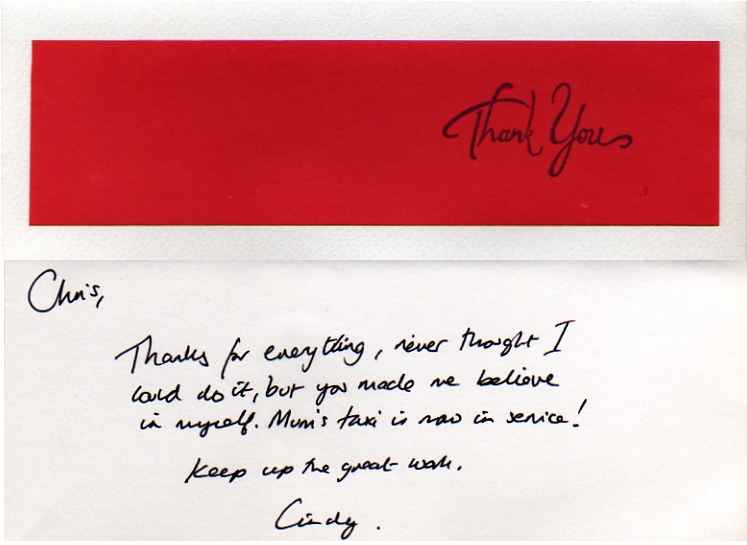 Thank You
Chris,
Thanks for everything, never thought I
could do it, but you made me believe
in myself. Mum's taxi is now in service!
Keep up the great work.
Cindy.